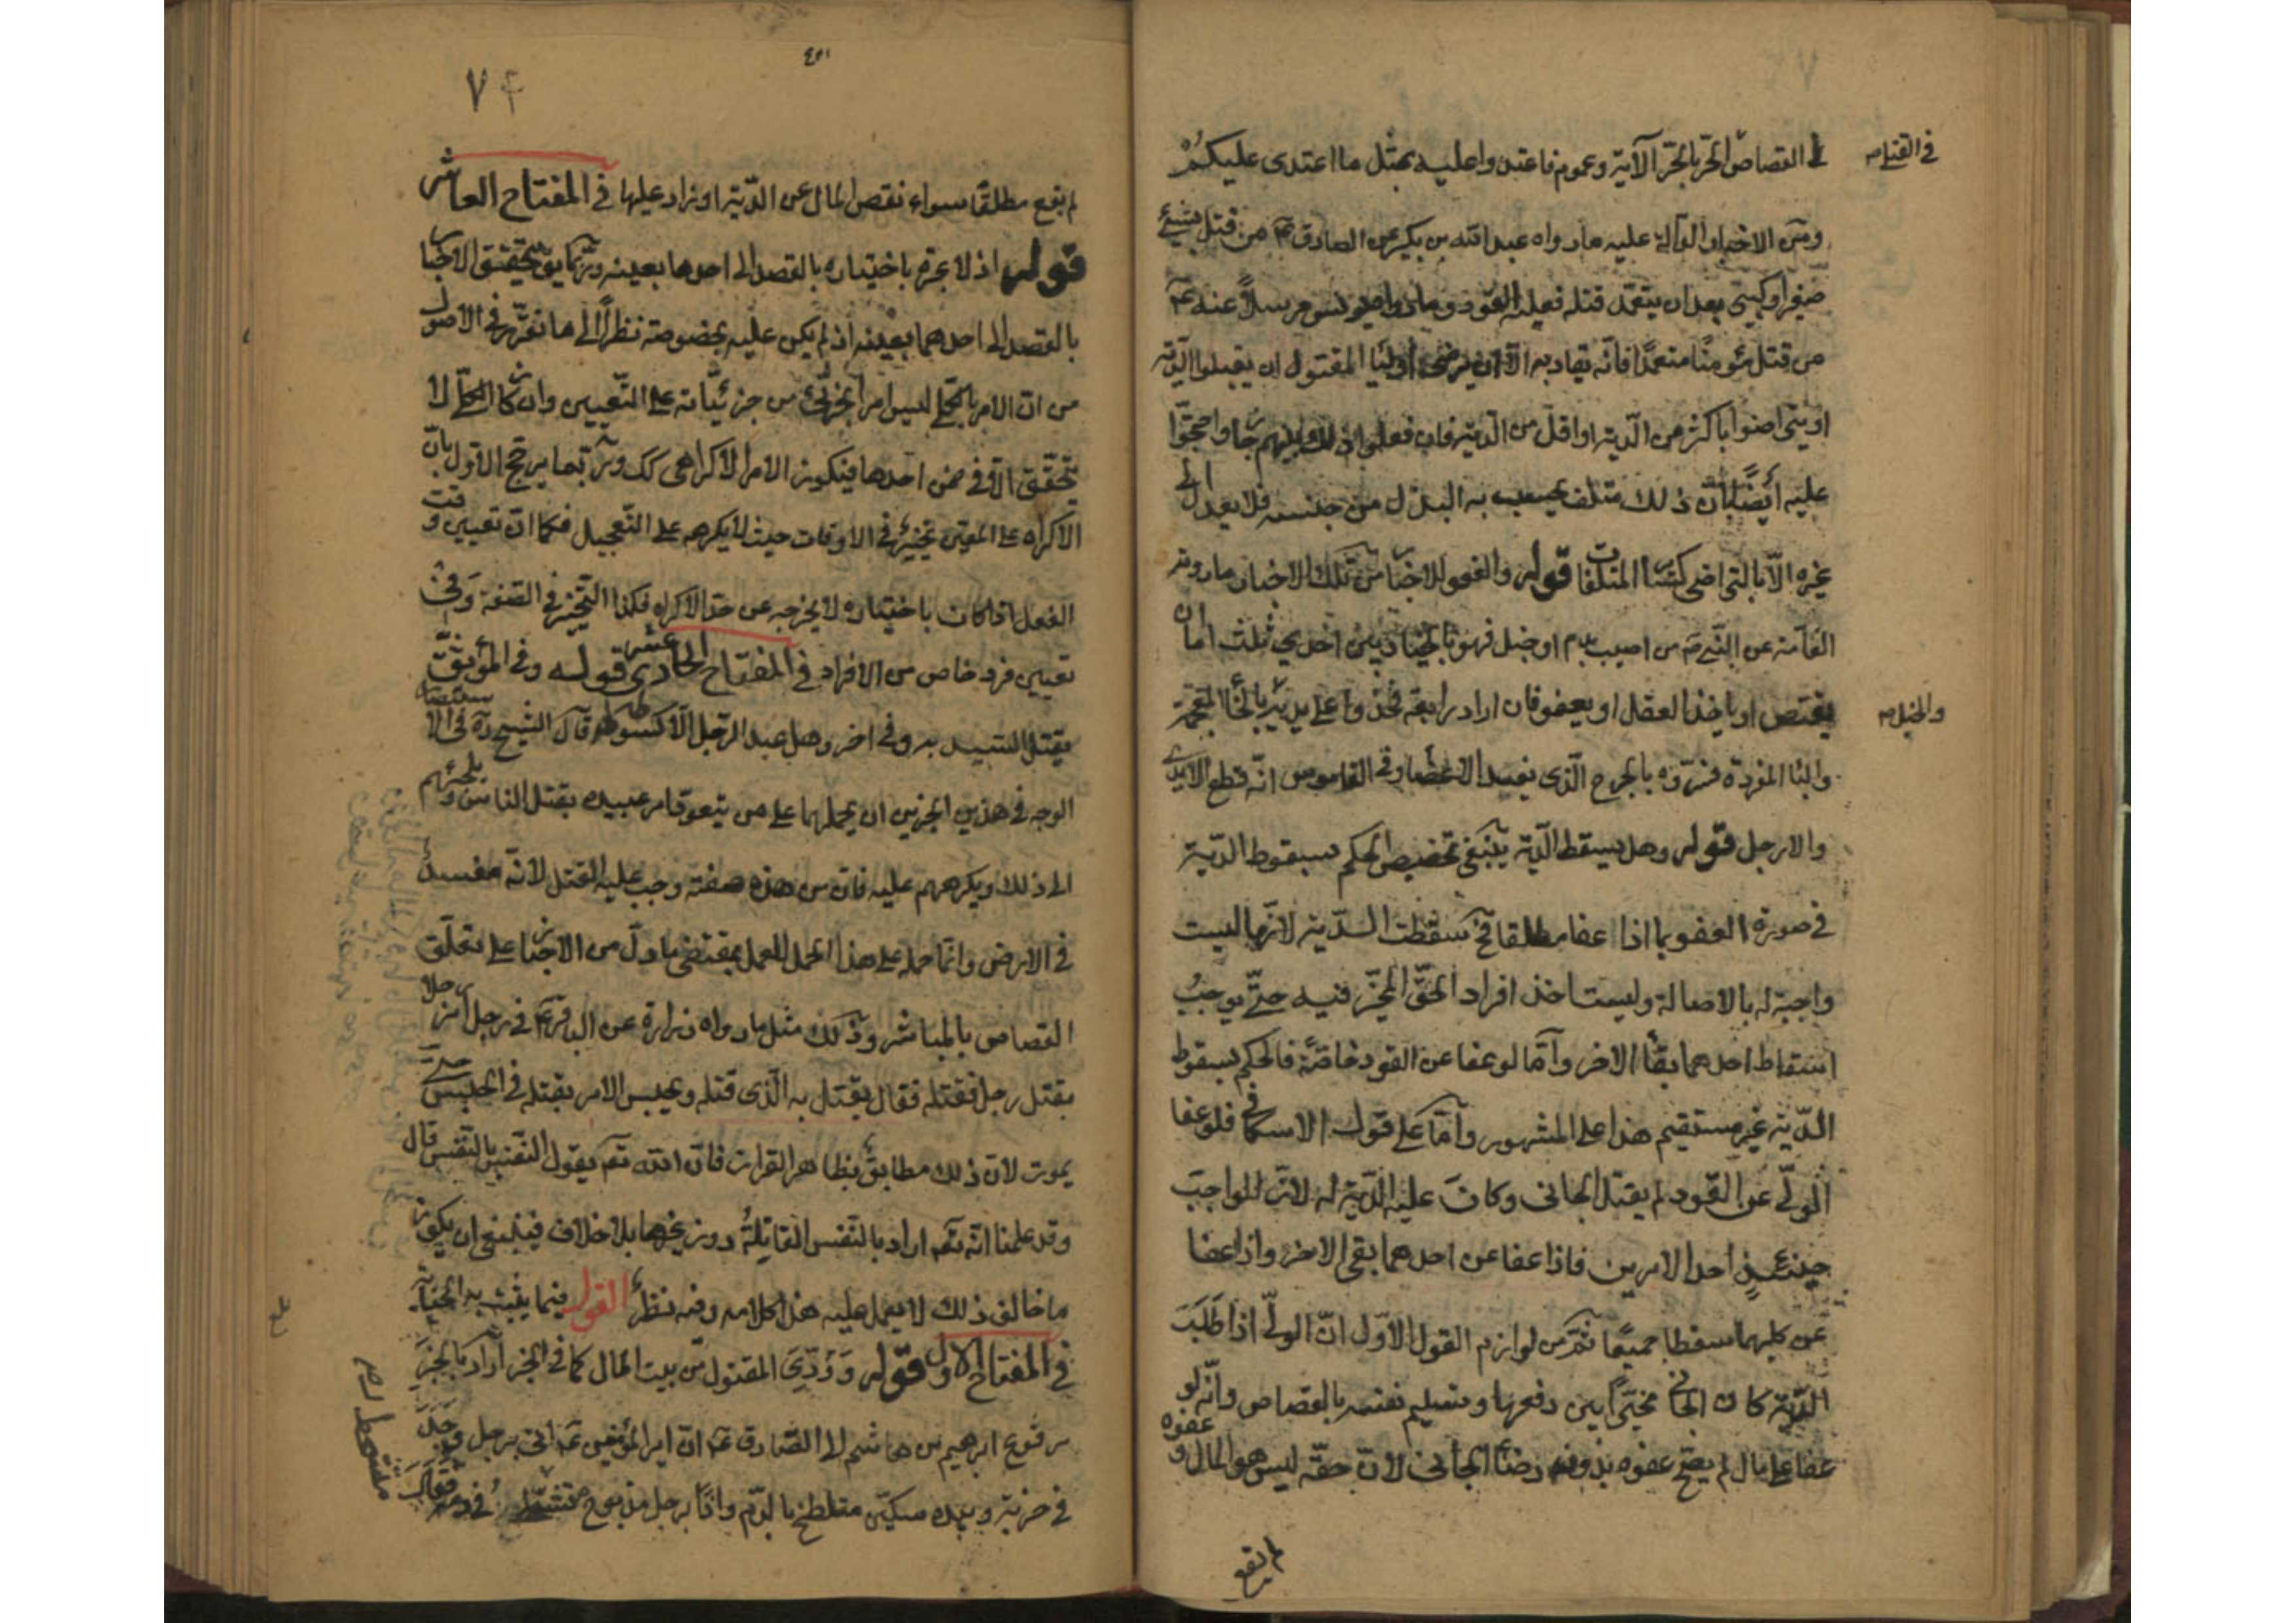 في القتلى
القصاص الحر بالحر الآية وعموم فاعتدوا عليه بمثل ما اعتدى عليكم
ومن الاخبار الدالة عليه ما رواه عبد الله بن بكير عن الصادق ع من قتل بشيئ
صغر او كبر بعد ان يتعمد قتله فعليه القود وما رواه يونس مرسلاً عنه ع
من قتل مؤمنا متعمدا فانّه يقاد به الا ان يرضى اولياء المقتول ان يقبلوا الدّية
او يتراضوا باكثر من الدّية او اقل من الدية فان فعلوا ذلك بينهم جاز واحتجّوا
عليه أيضا بانّ ذلك متلف يجب به البدل من جنسه فلا يعدل الى
غيره الّا بالتراضي كسائر المتلفات قوله والعفو للاخبار من تلك الاخبار ما روته
العامّة عن النّبي ص من اصيب بدم او خبل فهو بالخيار بين احدى ثلث اما ان
والخبل
يقتص او ياخذ العقل او يعفو فان اراد رابعة فخذوا على يديه بالخاء المعجمة
والباء المفردة فسّروه بالجرح الّذى يفسد الاعضاء وفي القاموس انّه قطع الايدى
والارجل قوله وهل يسقط الدّية ينبغى تخصيص الحكم بسقوط الدّية
في صورة العفو بما اذا عفا مطلقا فح سقطت الدّية لانّها ليست
واجبة له بالاصالة وليست احد افراد الحقّ المخيّر فيه حتّى يوجب
اسقاط احدهما بقاء الاخر وأمّا لو عفا عن القود خاصّة فالحكم بسقوط
الدّية غير مستقيم هذا على المشهور وأمّا على قول الاسكافي فلو عفا
الولّى عن القود لم يقتل الجانى وكان عليه الدّية له لانّ الواجب
حينئذٍ احد الامرين فاذا عفا عن احدهما بقى الاخر واذا عفا
عن كليهما سقطا جميعًا ثمّ من لوازم القول الاوّل انّ الولّى اذا طلب
الدّية كان الجانى مخيّراً بين دفعها وتسليم نفسه بالقصاص وانّه لو
عفا على مال لم يصحّ عفوه بدون رضا الجانى لانّ حقّه ليس هو المال و عفوه
لم يقع
٧٤
لم يقع مطلقًا سواء نقص المال عن الدّية او زاد عليها في المفتاح العاشر
قوله اذ لا عبرة باختياره بالقصد الى احدها بعينه وربّما يق بتحقّق الاختيار
بالقصد الى احدهما بعينه اذ لم يكن عليه بخصوصه نظراً الى ما تقرّر في الاصول
من انّ الامر بالكلّى ليس امرا بجزئىّ من جزئيّاته على التّعيين وان كان الكلّى لا
يتحقّق الّا في ضمن احدها فيكون الامر الاكراهى كك وربّما يرجح الاوّل بانّ
الاكراه على المعين تخيير في الاوقات حيث لا يكرهه على التّعجيل فكما انّ تعيين وقت
الفعل اذا كان باختياره لا يخرجه عن حدّ الاكراه فكذا التّخيير في الصّفة وفي
تعيين فرد خاص من الافراد في المفتاح الحادى عشر قوله وفي الموثّق
يقتل السّيد به وفي اخر وهل عبد الرّجل الّا كسوطه قال الشّيخ ره في الاستبصار
الوجه في هذين الخبرين ان يحملهما على من يتعود امر عبيده بقتل الناس ويلجئهم
الى ذلك ويكرههم عليه فانّ من هذه صفته وجب عليه القتل لانّه مفسد
في الارض وانّما حمله على هذا الحمل للعمل بمقتضى ما دلّ من الاخبار على تعلّق
القصاص بالمباشر وذلك مثل ما رواه زرارة عن الباقر ع في رجل امر رجلا
بقتل رجل فقتله فقال يقتل به الّذى قتله ويحبس الامر بقتله في الحبس حتّى
يموت لانّ ذلك مطابق بظاهر القران فانّ الله تعم يقول النّفس بالنّفس قال
وقد علمنا انّه تعم اراد بالنّفس القاتلة دون غيرها بلا خلاف فينبغى ان يكون
ما خالف ذلك لا يعمل عليه هذا كلامه وفيه نظر القول فيما يثبت به الجناية
في المفتاح الاول قوله وودّى المقتول من بيت المال كما في الخبر اراد بالخبر
مرفوع ابرهيم بن هاشم الى الصّادق ع انّ امير المؤمنين ع اتى برجل وجد
في خربة وبيده سكيّن متلطّخ بالدّم واذا برجل مذبوح يتشحّط في دمه فقال